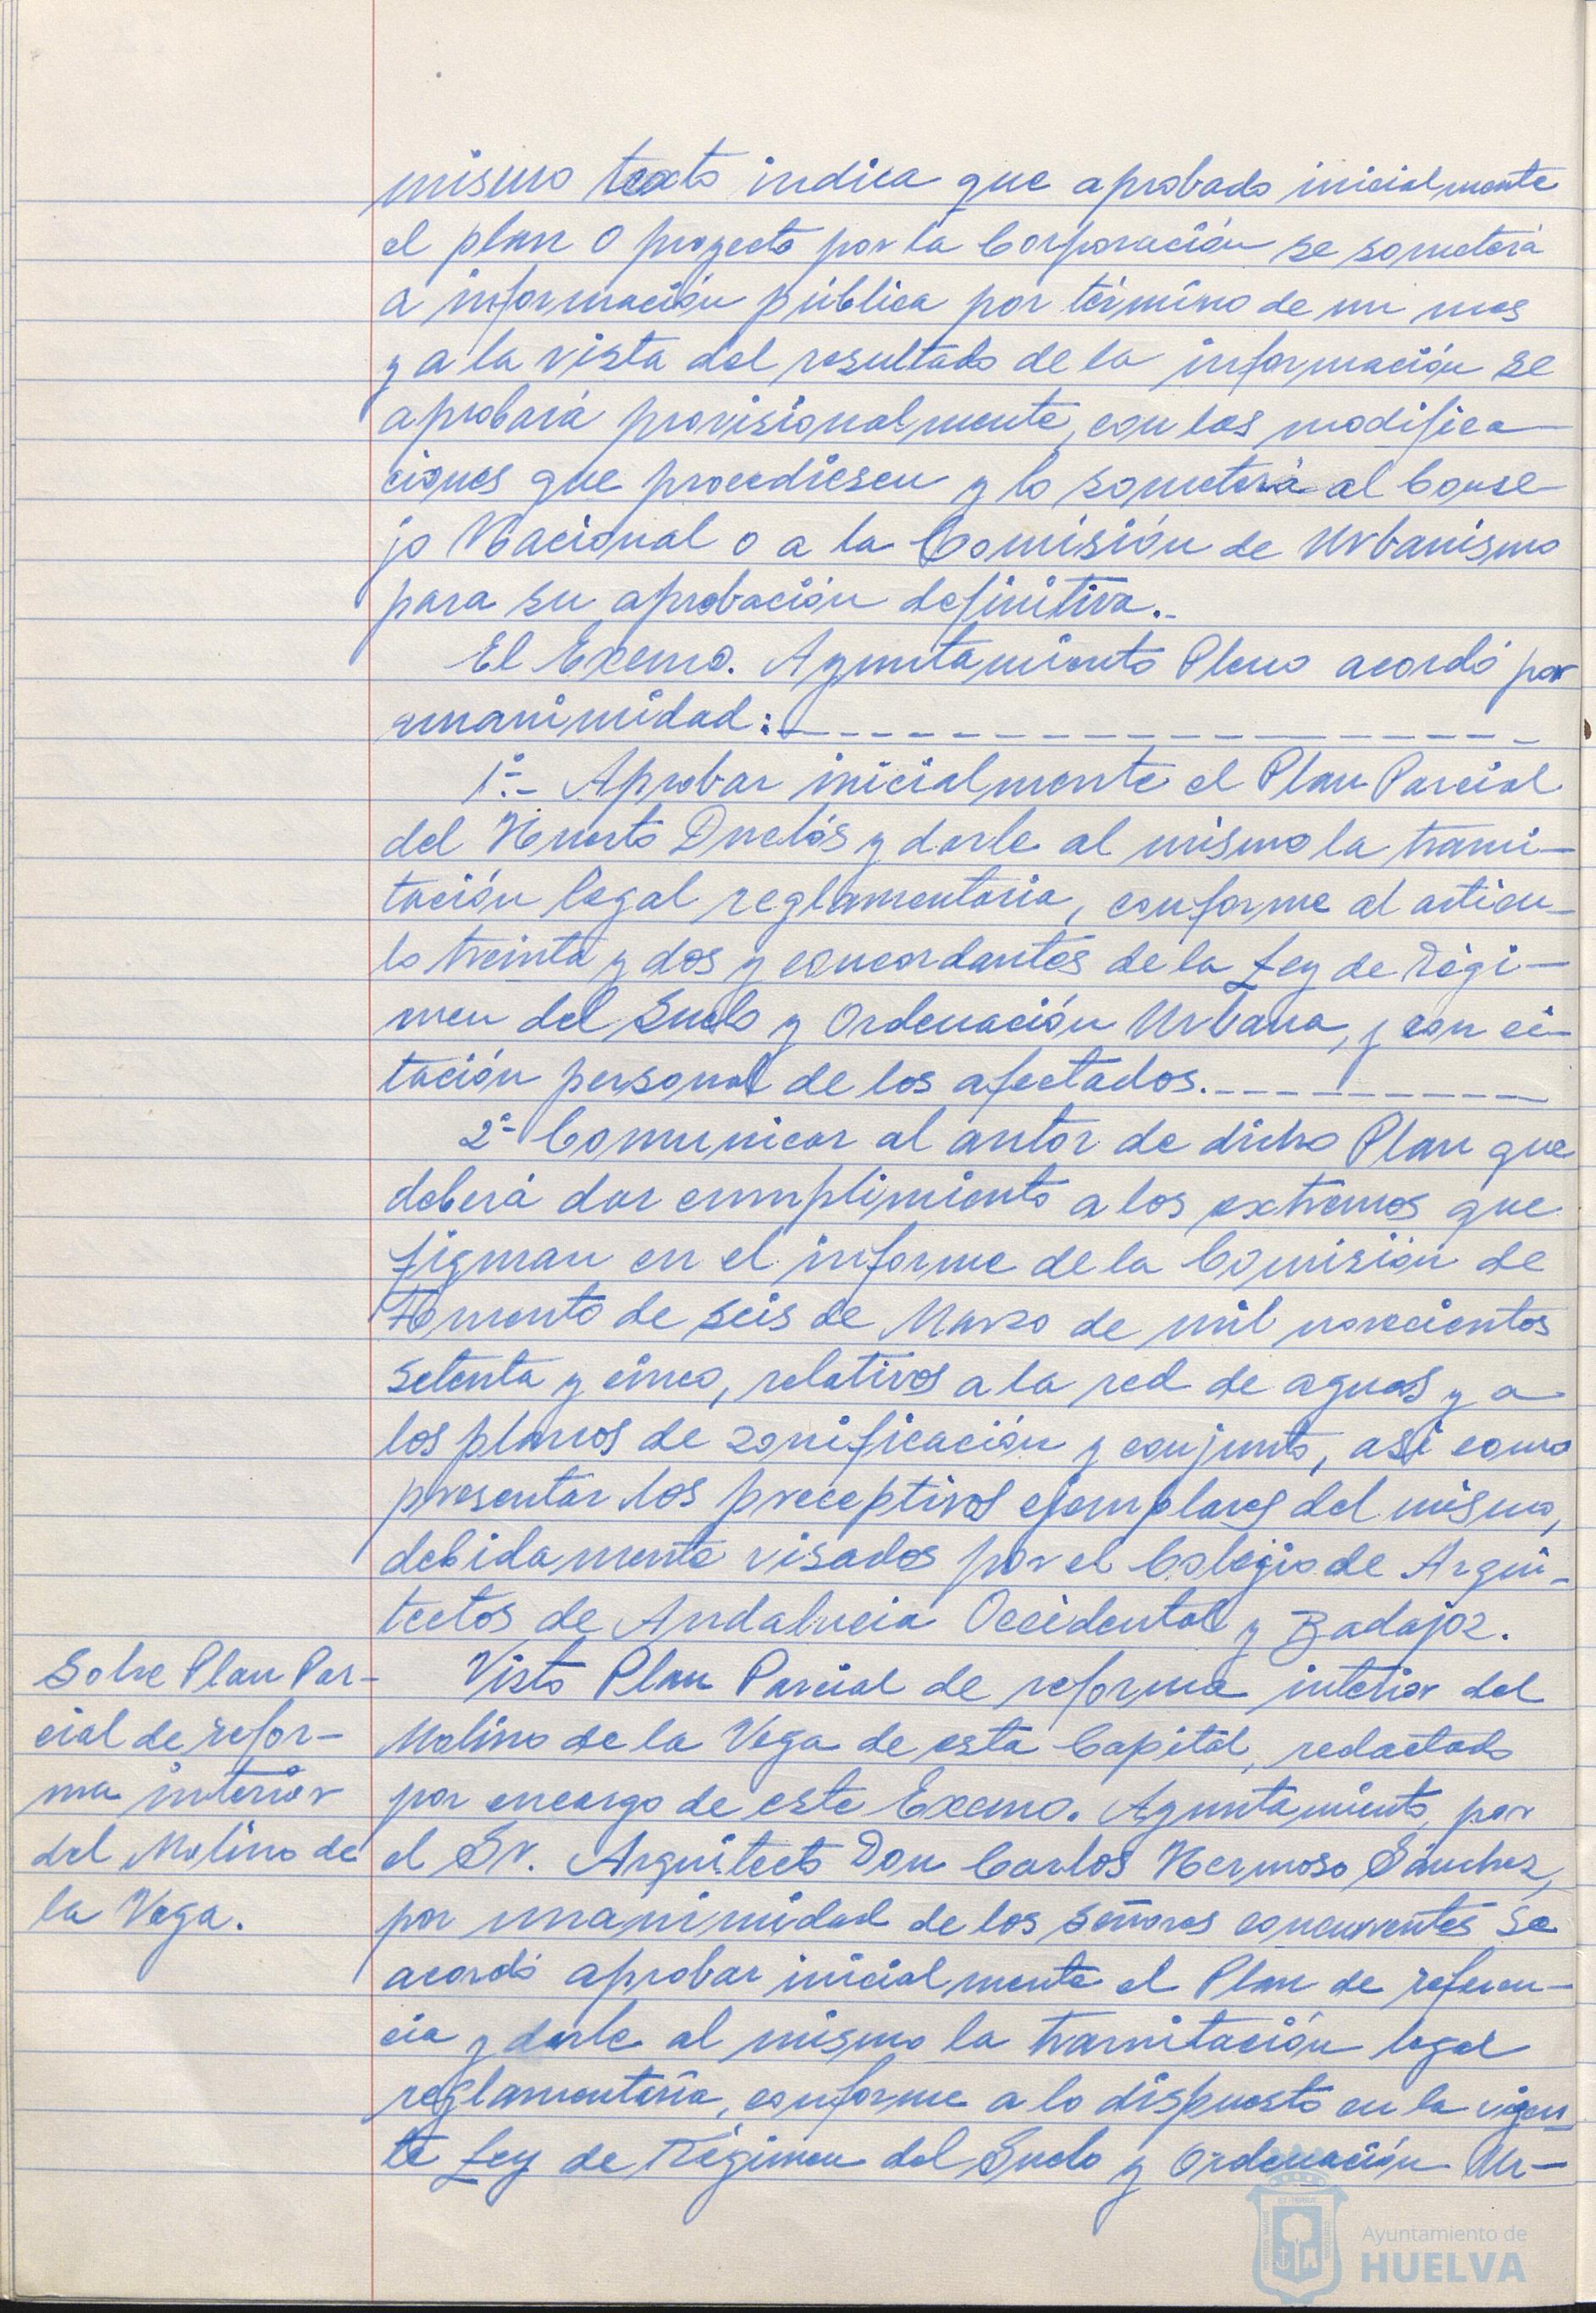 mismo texto indica que aprobado inicialmente
el plan o proyecto por la Corporación se someterá
a información pública por término de un mes
y a la vista del resultado de la información se
aprobará provisionalmente, con las modifica-
ciones que procediesen y lo someterá al Conse-
jo Nacional o a la Comisión de Urbanismo
para su aprobación definitiva.-
El Excmo. Ayuntamiento Pleno acordó por
unanimidad:
1º.- Aprobar inicialmente el Plan Parcial
del Huerto Duclós y darle al mismo la trami-
tación legal reglamentaria, conforme al articu-
lo treinta y dos y concordantes de la Ley de Régi-
men del Suelo y Ordenación Urbana, y con ci-
tación personal de los afectados.
2º- Comunicar al autor de dicho Plan que
deberá dar cumplimiento a los extremos que
figuran en el informe de la Comisión de
Fomento de seis de Marzo de mil novecientos
setenta y cinco, relativos a la red de aguas y a
los planos de zonificación y conjunto, así como
presentar los preceptivos ejemplares del mismo,
debidamente visados por el Colegio de Arqui-
tectos de Andalucía Occidental y Badajoz.
Sobre Plan Par-
cial de refor-
ma interior
del Molino de
la Vega.
Visto Plan Parcial de reforma interior del
Molino de la Vega de esta Capital, redactado
por encargo de este Excmo. Ayuntamiento, por
el Sr. Arquitecto Don Carlos Hermoso Sánchez,
por unanimidad de los señores concurrentes se
acordó aprobar inicialmente el Plan de referen-
cia y darle al mismo la tramitación legal
reglamentaria, conforme a lo dispuesto en la vigen-
te Ley de Régimen del Suelo y Ordenación Ur-
Ayuntamiento de
HUELVA